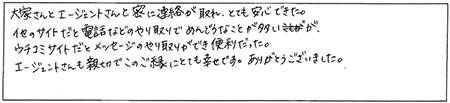 大家さんとエージェントさんと密に連絡が取れ、とても安心できた。
他のサイトだと電話などのやり取りでめんどうなことが多いが、
ウチコミサイトだとメッセージのやり取りができ便利だった。
エージェントさんも親切でこのご縁にとても幸せです。ありがとうございました。